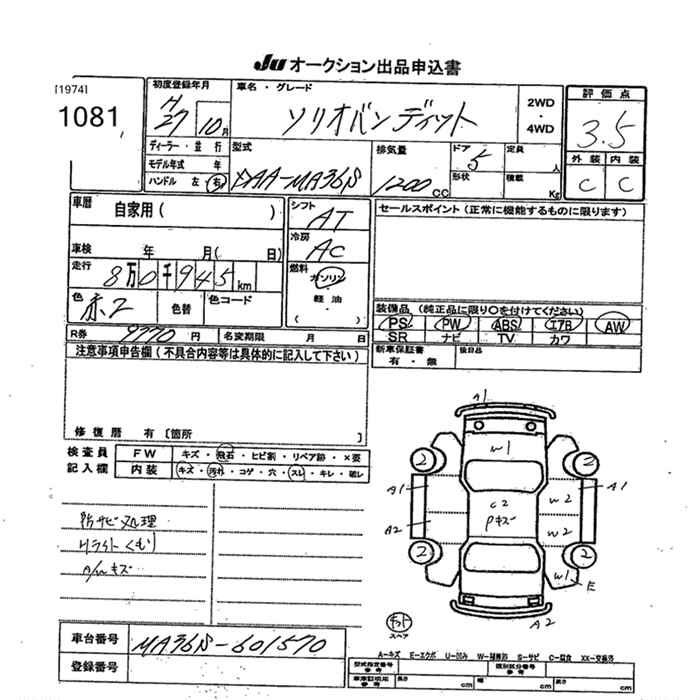 JU オークション出品申込書
[1974]
1081
初度登録年月
H27 10月
車名・グレード
ソリオバンディット
2WD
・
4WD
評価点
3.5
外装 内装
C C
ディーラー・並行
モデル年式 年
ハンドル 左 右
型式
DAA-MA36S
排気量
1200 CC
ドア
5
形状
定員
人
積載
Kg
車歴
自家用( )
シフト
AT
冷房
AC
燃料
ガソリン
軽油
( )
セールスポイント(正常に機能するものに限ります)
車検 年 月( 日)
走行
8万0千945km
色
赤2
色替
色コード
装備品(純正品に限り○を付けてください)
PS PW ABS エアB AW
SR ナビ TV カワ
R券 9770円
名変期限 月 日
新車保証書
有・無
後日品
注意事項申告欄(不具合内容等は具体的に記入して下さい)
修復歴 有〔箇所 〕
検査員
記入欄
FW キズ・飛石・ヒビ割・リペア跡・×要
内装 キズ・汚れ・コゲ・穴・スレ・キレ・破レ
防サビ処理
Hライトくもり
A/wキズ
A1
W1
2 2
A1 W2 A1
C2
Pキズ
A2 W2
2 2
W1 E
A2
キット
スペア
車台番号
MA36S-601570
登録番号
A-キズ E-エクボ U-凹み W-補修跡 S-サビ C-腐食 XX-交換済
型式指定番号
参考
類別区分番号
参考
車庫証明用
参考
長さ cm
幅 cm
高さ cm